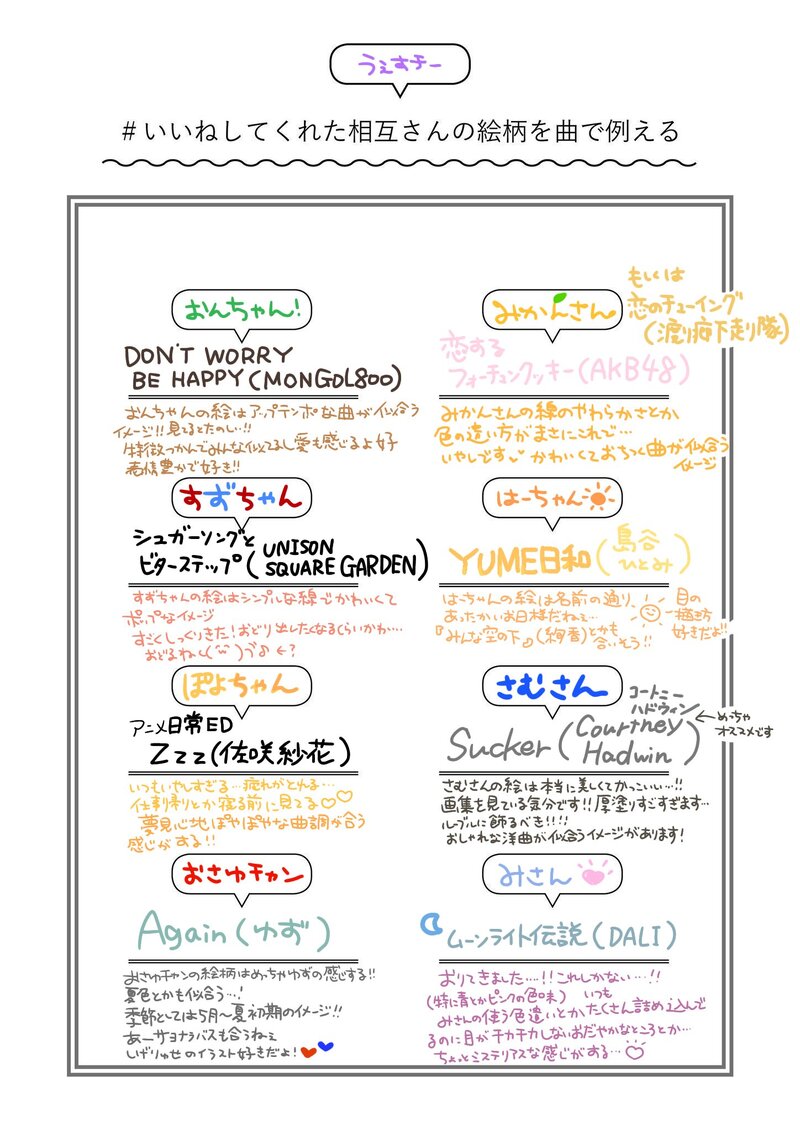 うぇすチー
#いいねしてくれた相互さんの絵柄を曲で例える
おんちゃん!
DON'T WORRY
BE HAPPY(MONGOL800)
おんちゃんの絵はアップテンポな曲が似合う
イメージ!!見てるとたのしい!!
特徴つかんでみんな似てるし愛も感じるよ好
表情豊かで好き!!
みかんさん
もしくは
恋のチューイング
(渡り廊下走り隊)
恋する
フォーチュンクッキー(AKB48)
みかんさんの線のやわらかさとか
色の遣い方がまさにこれで…
いやしです かわいくておちつく曲が似合う
イメージ
すずちゃん
シュガーソングと
ビターステップ(UNISON
SQUARE GARDEN)
すずちゃんの絵はシンプルな線でかわいくて
ポップなイメージ
すごくしっくりきた!おどり出したくなるくらいかわ…
おどるね
はーちゃん
YUME日和(島谷
ひとみ)
はーちゃんの絵は名前の通り、
あったかいお日様だねぇ…
『みんな空の下』(絢香)とかも
合いそう!!
目の
描き方
好きだよ!!
ぽよちゃん
アニメ日常ED
Zzz(佐咲紗花)
いつもいやしすぎる…疲れがとれる…
仕事帰りとか寝る前に見てる♡♡
夢見心地ぽやぽやな曲調が合う
感じがする!!
さむさん
コートニー
ハドウィン
←めっちゃ
オススメです
Sucker(Courtney
Hadwin)
さむさんの絵は本当に美しくてかっこいい…!!
画集を見ている気分です!!厚塗りすごすぎます…
ルーブルに飾るべき!!!!
おしゃれな洋曲が似合うイメージがあります!
おさゅチャン
Again(ゆず)
おさゅチャンの絵柄はめっちゃゆずの感じする!!
夏色とかも似合う…!
季節としては5月〜夏初期のイメージ!!
あーサヨナラバスも合うねぇ
しげりゅせのイラスト好きだよ!
みさん
ムーンライト伝説(DALI)
おりてきました…!!これしかない…!!
(特に青とかピンクの色味) いつも
みさんの使う色遣いとか、たくさん詰め込んで
るのに目がチカチカしないおだやかなところとか…
ちょっとミステリアスな感じがする…♡